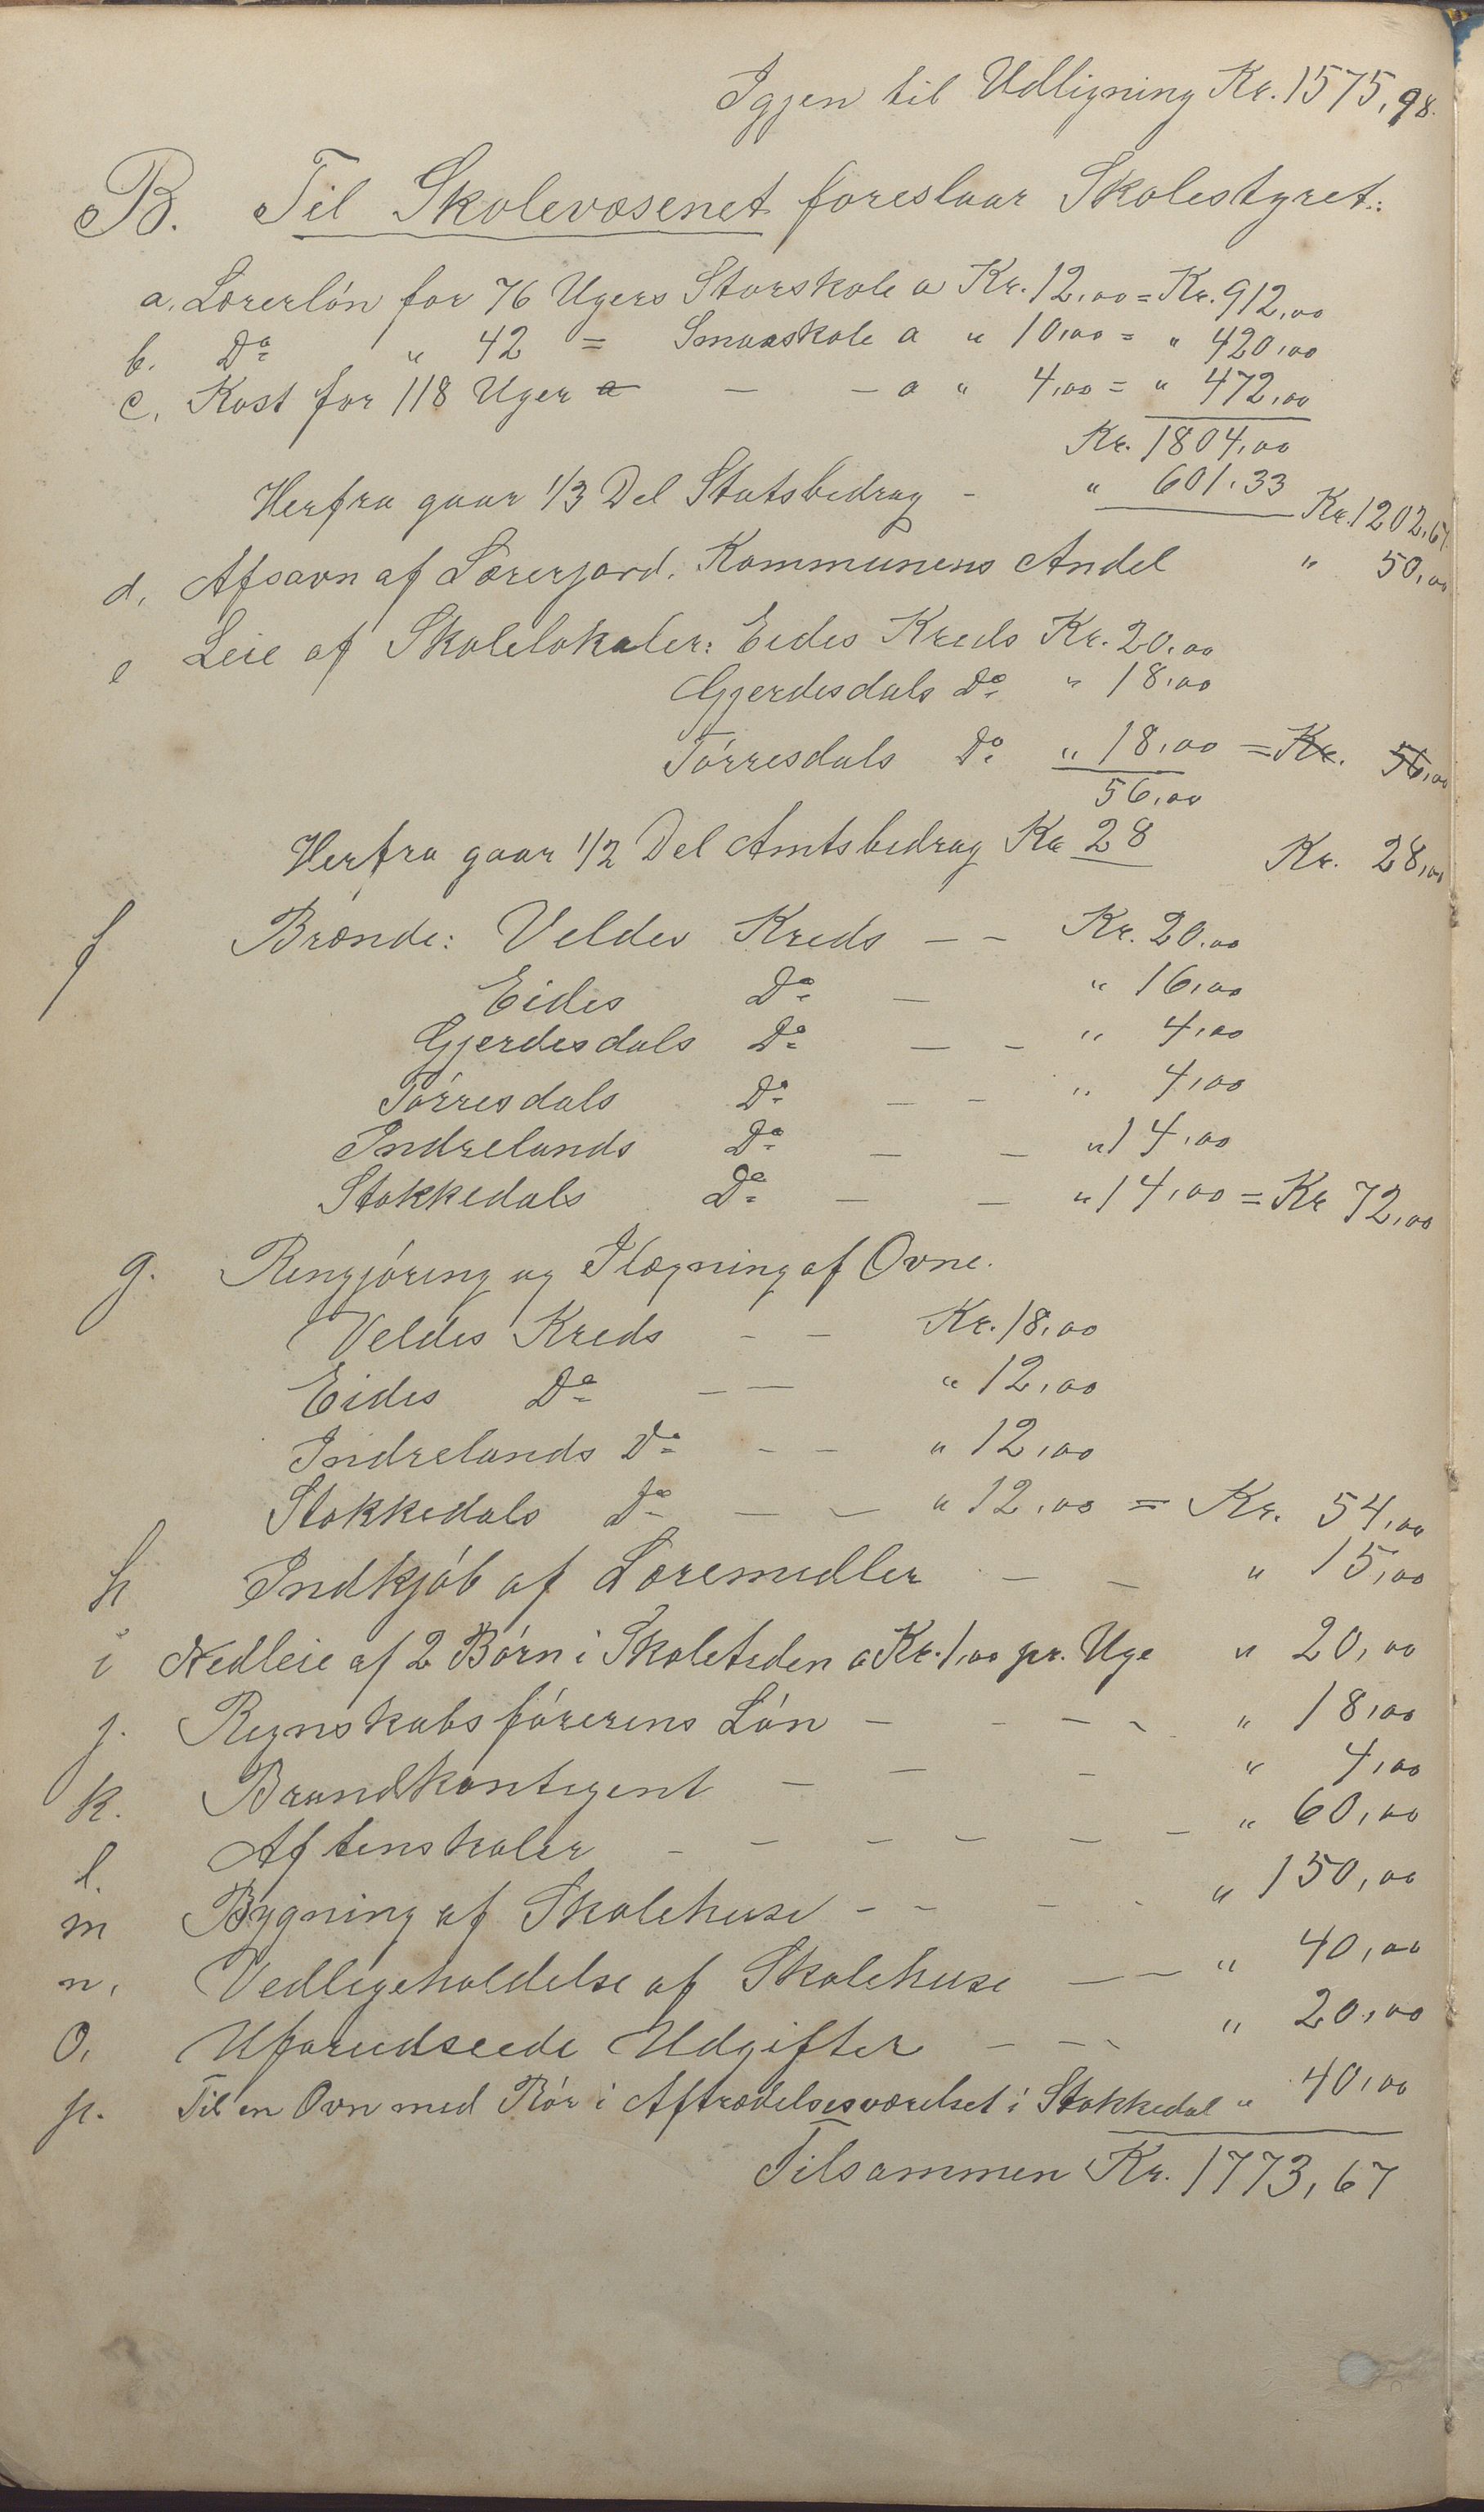 Igjen til Udligning Kr. 1575,98.
B. Til Skolevæsenet foreslaar Skolestyret:
a. Lærerløn for 76 Ugers Storskole a Kr. 12,00 = Kr. 912,00
b. Do " 42 = Smaaskole a " 10,00 = " 420,00
c. Kost for 118 Uger a — — a " 4,00 = " 472,00
Kr. 1804,00
Herfra gaar 1/3 Del Statsbidrag - " 601,33 Kr. 1202,67
d. Afsavn af Lærerjord. Kommunens Andel " 50,00
e Leie af Skolelokaler: Eides Kreds Kr. 20,00
Gjerdesdals Do " 18,00
Tørresdals Do " 18,00 = Kr. 56,00
56,00
Herfra gaar 1/2 Del Amtsbidrag Kr 28 Kr. 28,00
f Brænde: Veldes Kreds — — Kr. 20,00
Eides Do — " 16,00
Gjerdesdals Do — — " 4,00
Tørresdals Do — — " 4,00
Indrelands Do — — " 14,00
Stokkedals Do — — " 14,00 = Kr 72,00
g. Rengjøring og Ilægning af Ovne.
Veldes Kreds — — Kr. 18,00
Eides Do — — " 12,00
Indrelands Do — — " 12,00
Stokkedals Do — — " 12,00 = Kr. 54,00
h Indkjøb af Læremidler — — " 15,00
i Nedleie af 2 Børn i Skoletiden a Kr. 1,00 pr. Uge " 20,00
j. Regnskabsførerens Løn — — — — " 18,00
k. Brandkontigent — — — " 4,00
l. Aftenskoler — — — — — — " 60,00
m Bygning af Skolehuse — — — - " 150,00
n. Vedligeholdelse af Skolehuse — — " 40,00
o. Uforudseede Udgifter — — - " 20,00
p. Til en Ovn med Rør i Aftrædelsesværelset i Stokkedal " 40,00
Tilsammen Kr. 1773,67